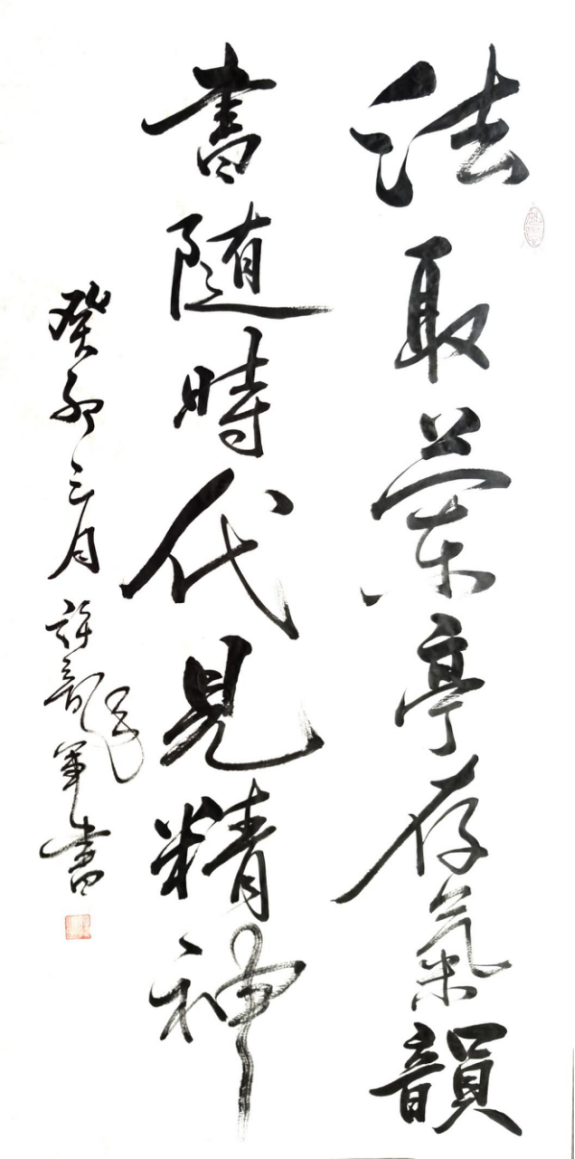 法取蘭亭存氣韻
書随時代見精神
癸卯三月許龍軍書